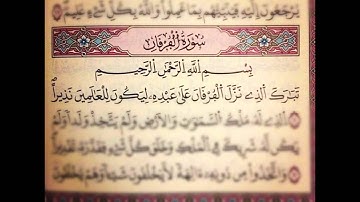 يُرْجَعُونَ إِلَيْهِ فَيُنَبِّئُهُم بِمَا عَمِلُوا۟ وَٱللَّهُ بِكُلِّ شَىْءٍ عَلِيمٌ
سُورَةُ الْفُرْقَانِ
بِسْمِ ٱللَّهِ ٱلرَّحْمَٰنِ ٱلرَّحِيمِ
تَبَارَكَ ٱلَّذِى نَزَّلَ ٱلْفُرْقَانَ عَلَىٰ عَبْدِهِۦ لِيَكُونَ لِلْعَٰلَمِينَ نَذِيرًا
ٱلَّذِى لَهُۥ مُلْكُ ٱلسَّمَٰوَٰتِ وَٱلْأَرْضِ وَلَمْ يَتَّخِذْ وَلَدًا وَلَمْ
يَكُن لَّهُۥ شَرِيكٌ فِى ٱلْمُلْكِ وَخَلَقَ كُلَّ شَىْءٍ فَقَدَّرَهُۥ تَقْدِيرًا
وَٱتَّخَذُوا۟ مِن دُونِهِۦٓ ءَالِهَةً لَّا يَخْلُقُونَ شَيْـًٔا وَهُمْ يُخْلَقُونَ